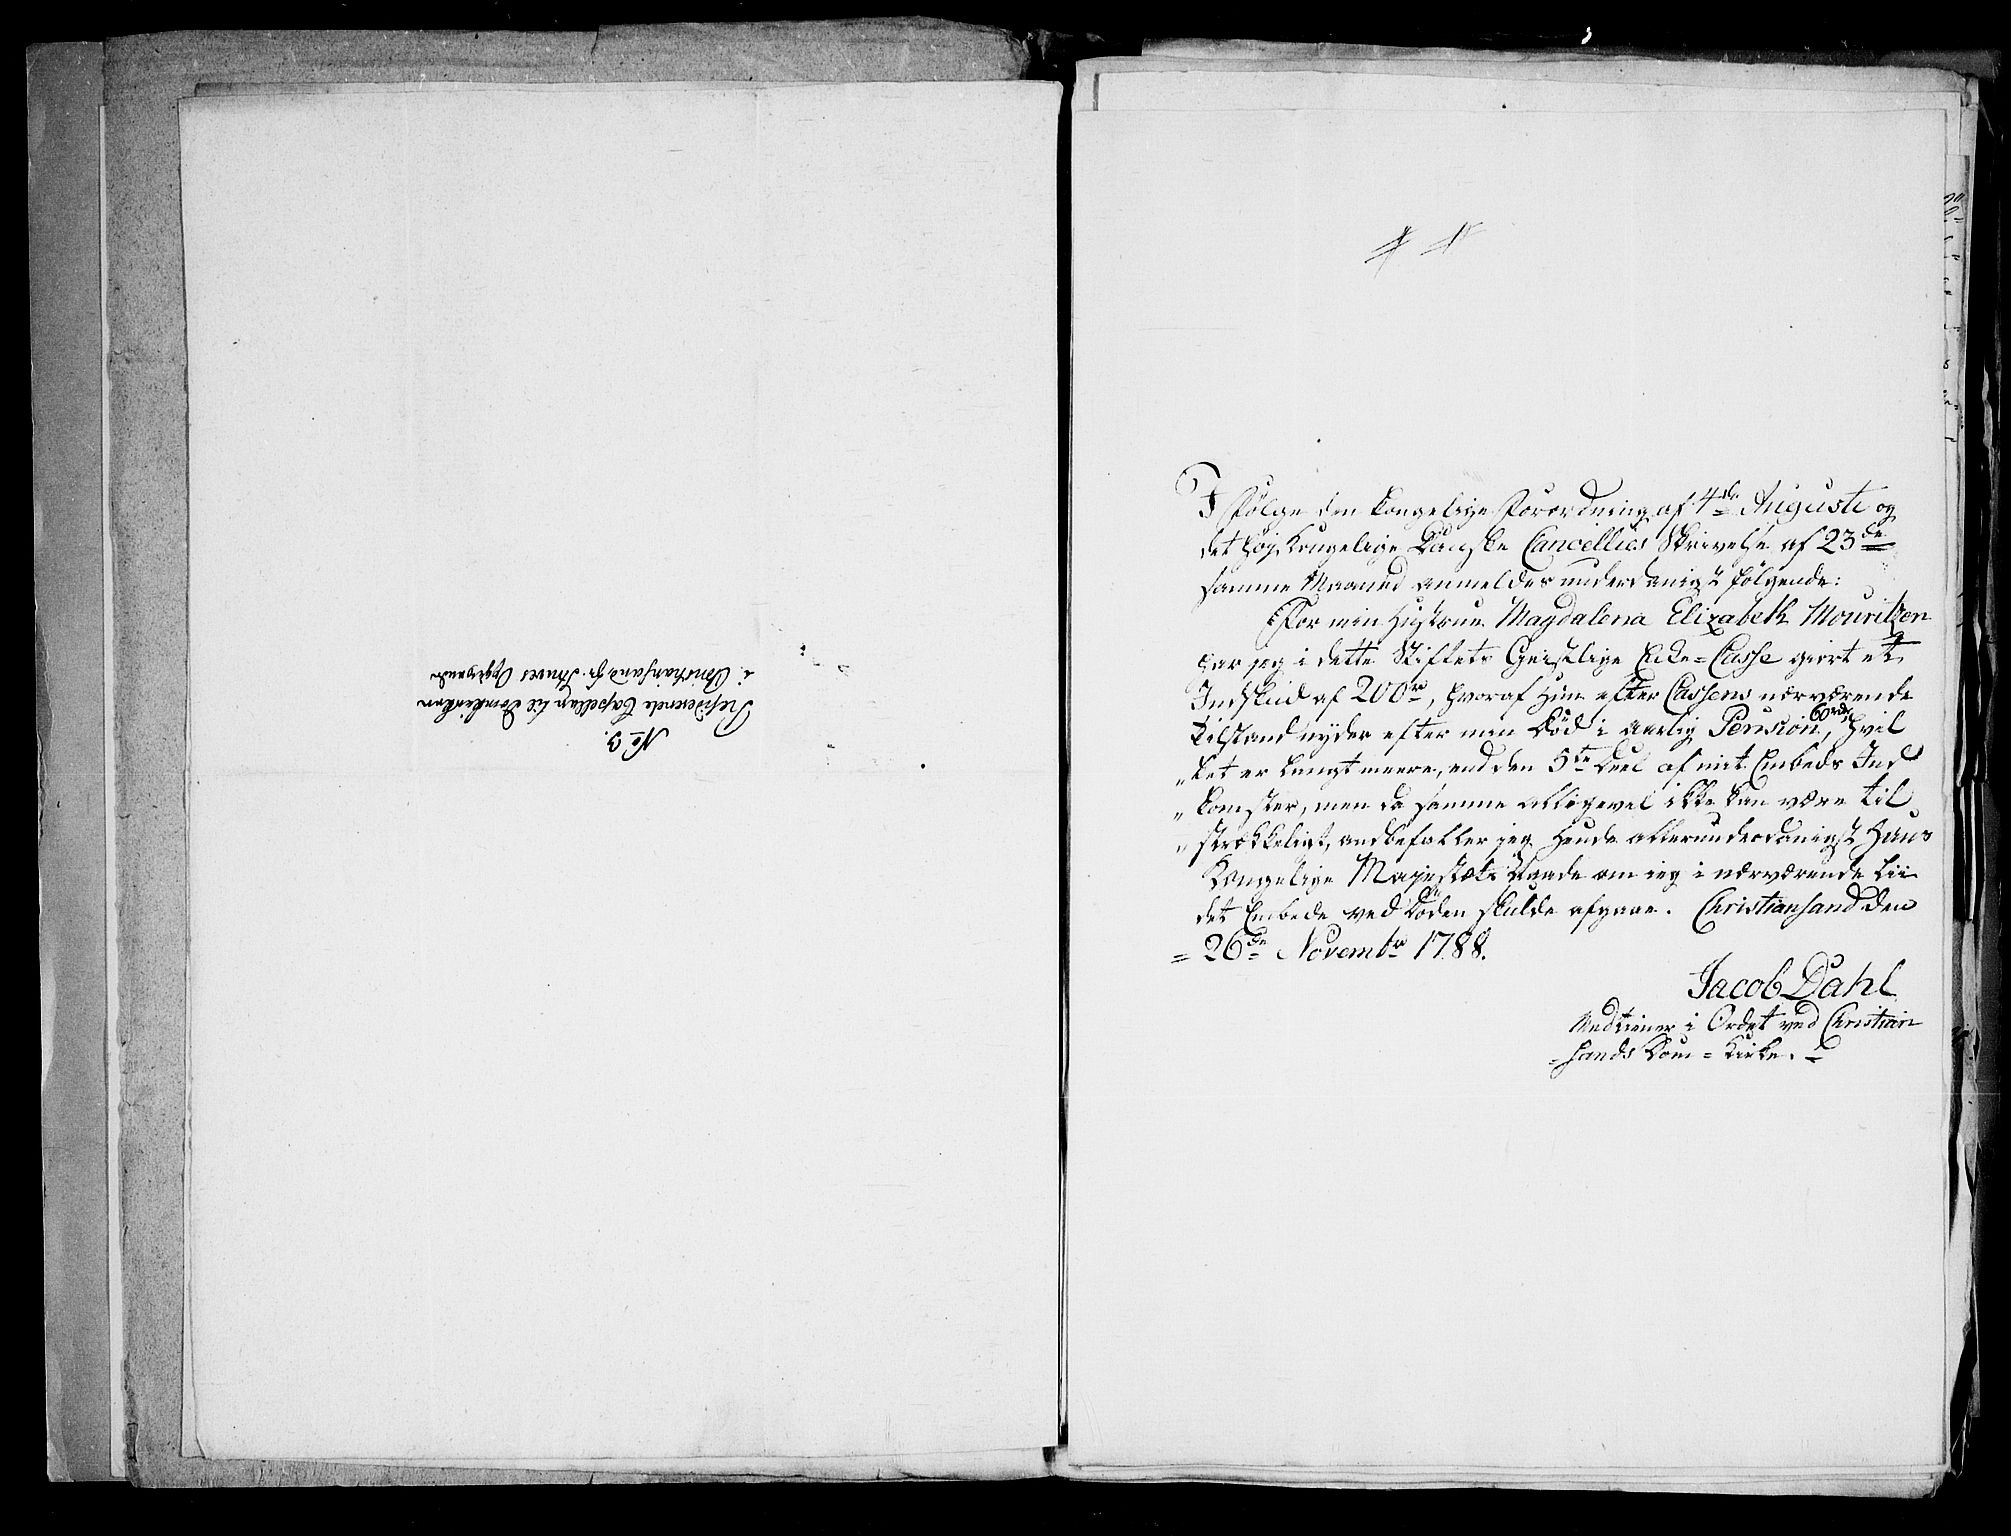 No 3.
Residerende Capellan til Domkirken
i Christiansand Hr. Opgivende
I følge den Kongelige Forordning af 4de Augusti og
det høj Kongelige Danske Cancellies Skrivelse af 23de
samme Maaned anmeldes underdanigst følgende:
For min Hustrue Magdalena Elizabeth Mouritzen
har jeg i dette Stiftets Geistlige Enke=Casse giort et
Indskud af 200rd, hvoraf Hun efter Cassens nærværende
Tilstand nyder efter min Død i aarlig Pension 60rdr, hvil
„ket er langt meere, end den 5te Deel af mit Embeds Ind
„komster, men da samme alligevel ikke kan være til
„strekkeligt, andbefaller jeg Hende allerunderdanigst Hans
Kongelige Majestæts Naade om jeg i nærværende Lii
det Embede ved Døden skulde afgaae. Christiansand den
= 26de Novembr 1788.
Jacob Dahl
Medtiener i Ordet ved Christian
=sands Dom=Kirke.